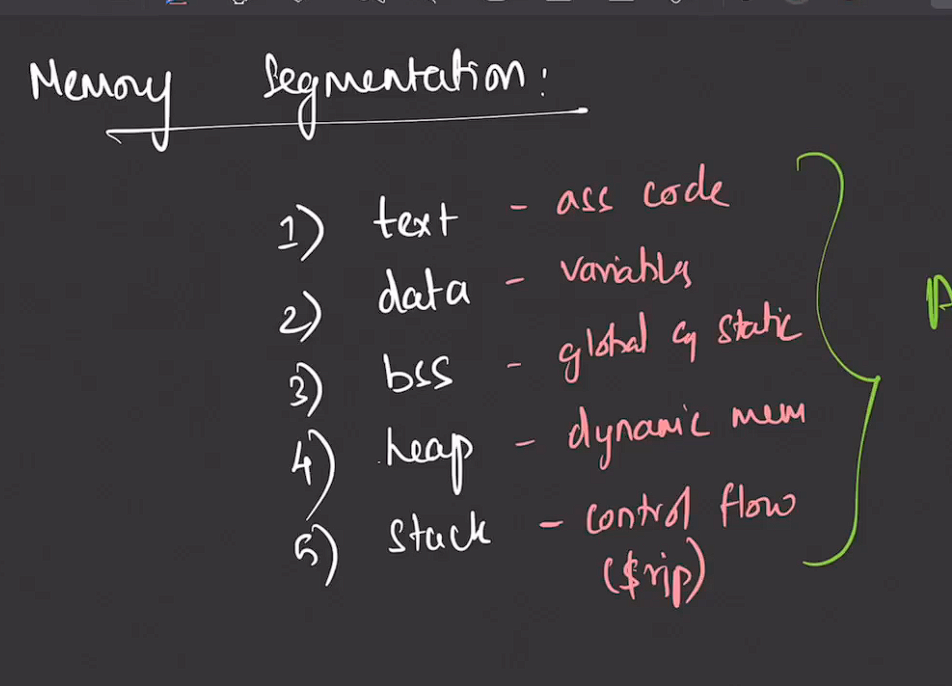 Memory Segmentation:
1) text - ass code
2) data - variables
3) bss - global & static
4) heap - dynamic mem
5) stack - control flow
($rip)